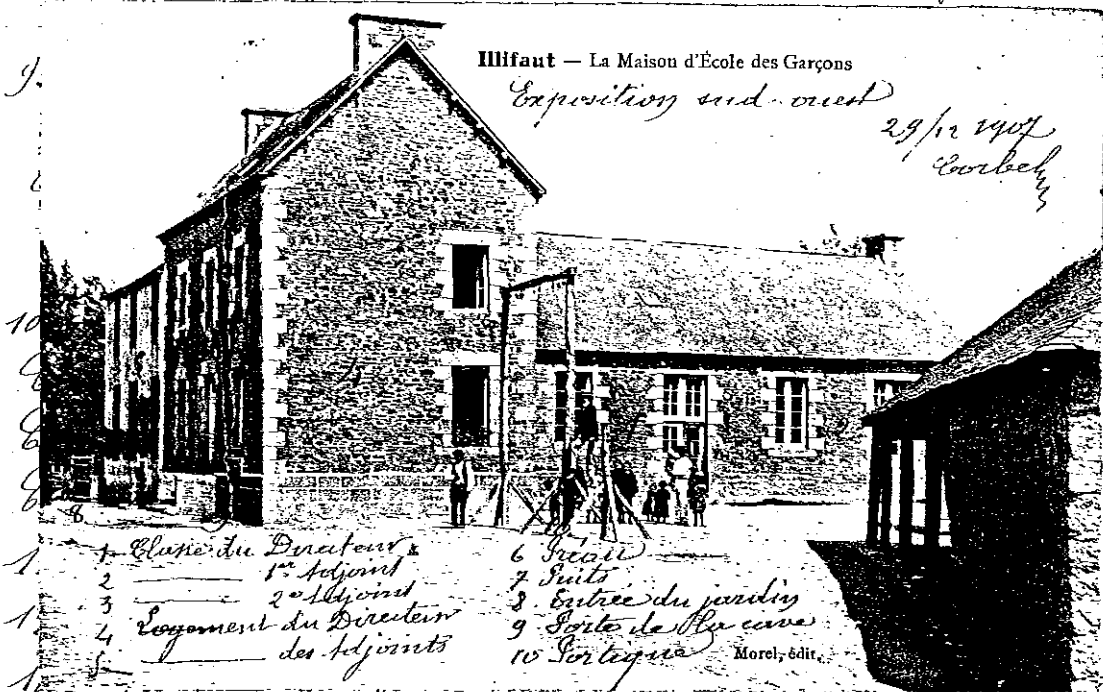 Illifaut — La Maison d'École des Garçons
Exposition sud-ouest
29/12 1907
Corbel
9.
10
8
1 Classe du Directeur
2 ——— 1er Adjoint
3 ——— 2e Adjoint
4 Logement du Directeur
5 ——— des Adjoints
6 Préau
7 Puits
8 Entrée du jardin
9 Porte de la cave
10 Portique
Morel, édit.